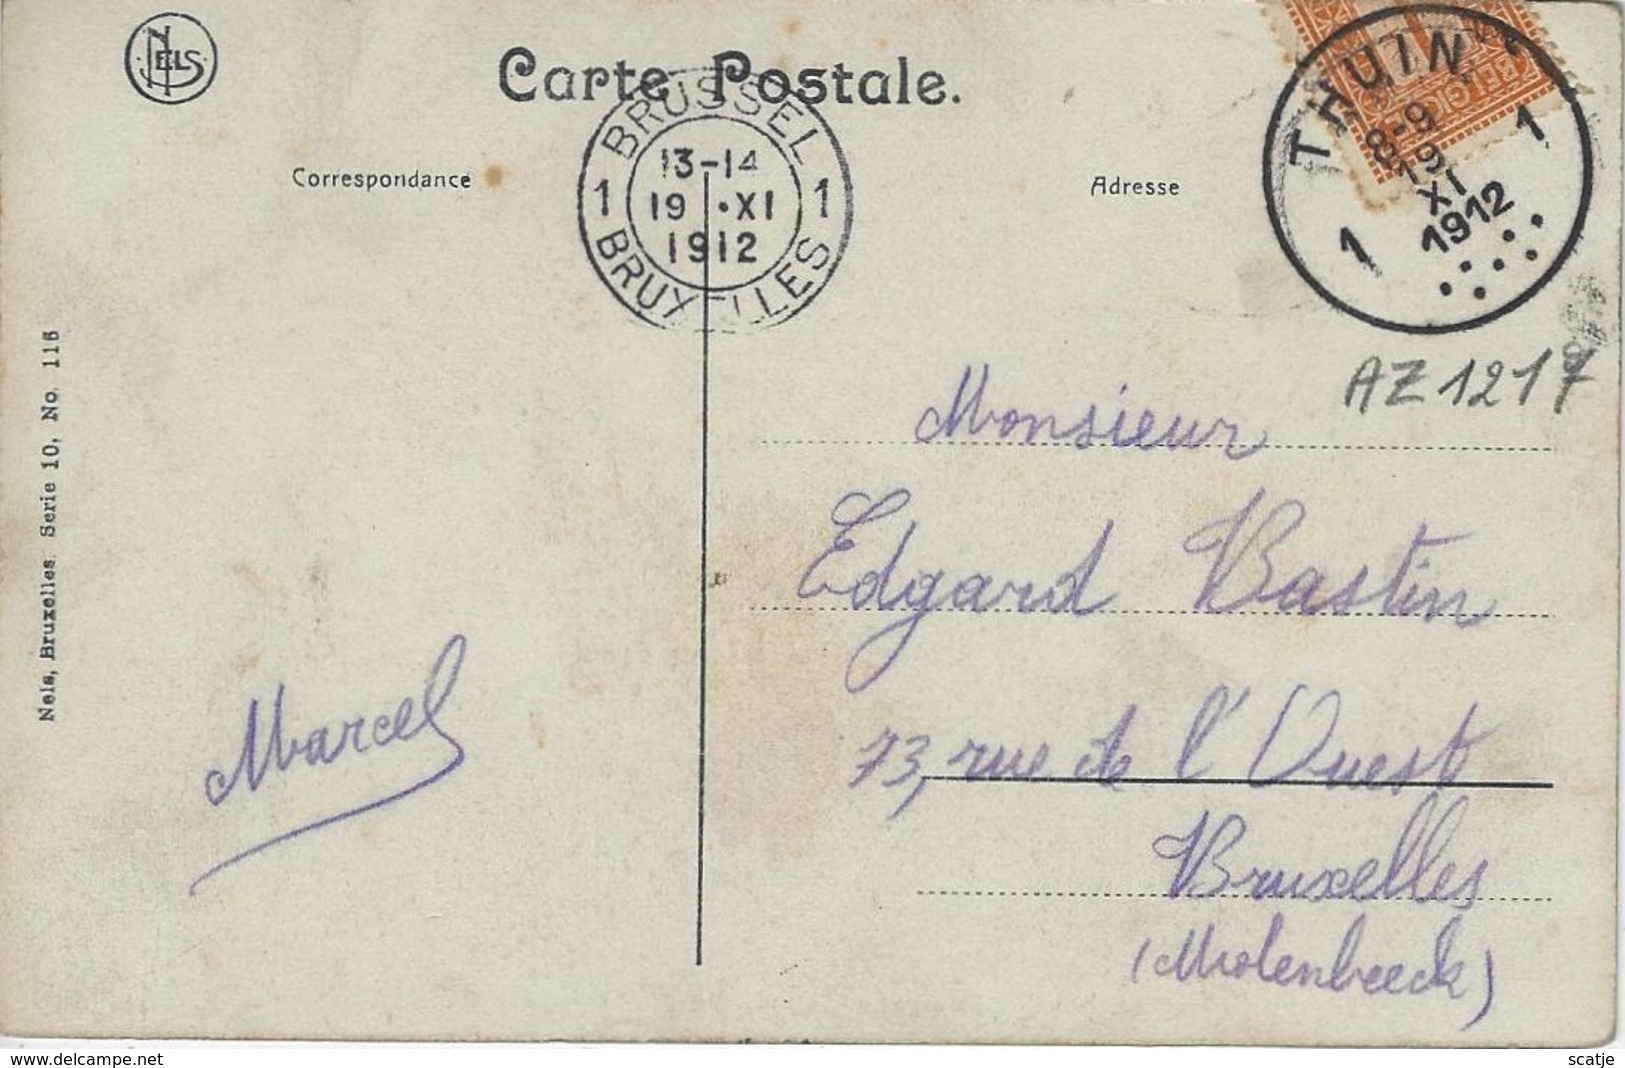 NELS
Carte Postale.
Correspondance
Adresse
BRUSSEL
1 13-14 1
19 ·XI
1912
BRUXELLES
THUIN
8-9
19 XI
1912
1 1
BELGIE
AZ1217
Monsieur
Edgard Bastin
73, rue de l'Ouest
Bruxelles
(Molenbeeck)
Marcel
Nels, Bruxelles. Serie 10, No. 116
www.delcampe.net
scatje